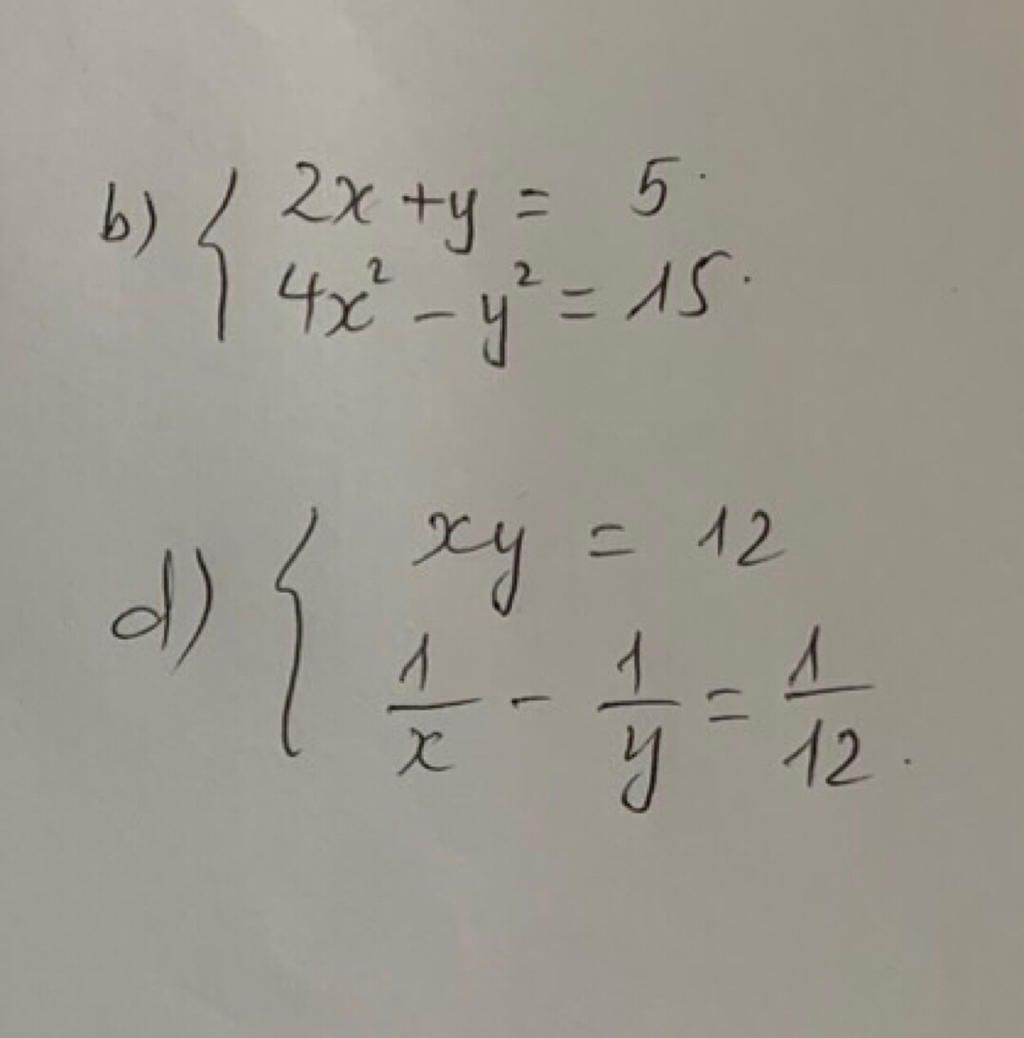 b) { 2x + y = 5.
4x² - y² = 15.
d) { xy = 12
1/x - 1/y = 1/12.